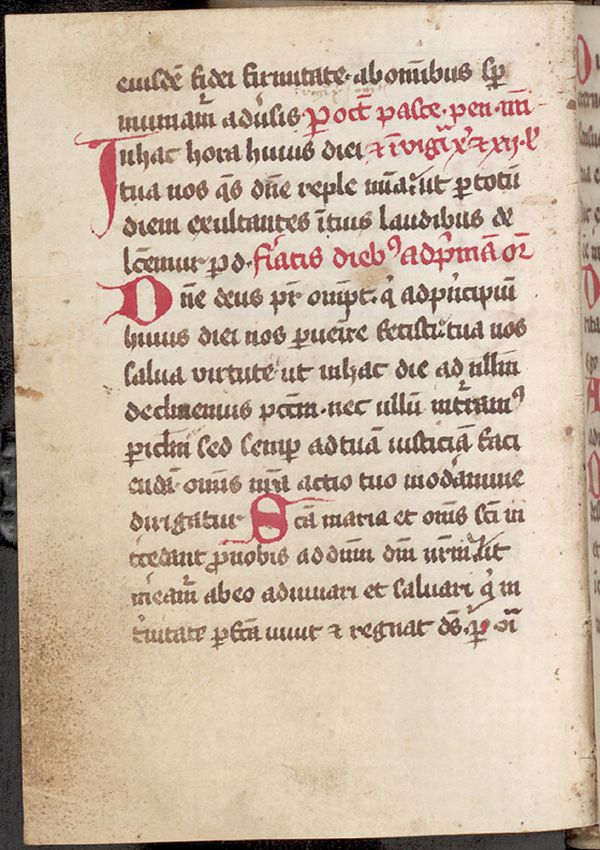 eiusdē fidei firmitate · ab omībus sp̄
muniam̄ adūsis · P oct̄ pasce · pen · 
In hac hora huius diei ⁊ ī vigī x ⁊ xij · l̄
tua nos q̄s dn̄e reple mīa · ut p totū
diem exultantes ī tuis laudibus de
lc̄emur p d · firātis dieb⁹ ad p̄mā or̄
Dn̄e deus pr̄ om̄pt · q̄ ad p̄ncipiū
huius diei nos p̱uenire fecisti · tua nos
salua virtute · ut in hac die ad nullm̄
declinemus pcc̄m · nec ullū incͬramꝰ
pic̄lm sed semp̄ ad tuā iusticiā faci
endā omīs nr̄a actio tuo modāmine
dirigatur Sc̄ā maria et om̄s sc̄i in
tcedant p nobis ad dnm̄ dm̄ nr̄m · ut
meam̄ ab eo adiuuari et saluari q̄ in
tͥnitate pfc̄ā uiuit ⁊ regnat ds̄ · p̄ oī